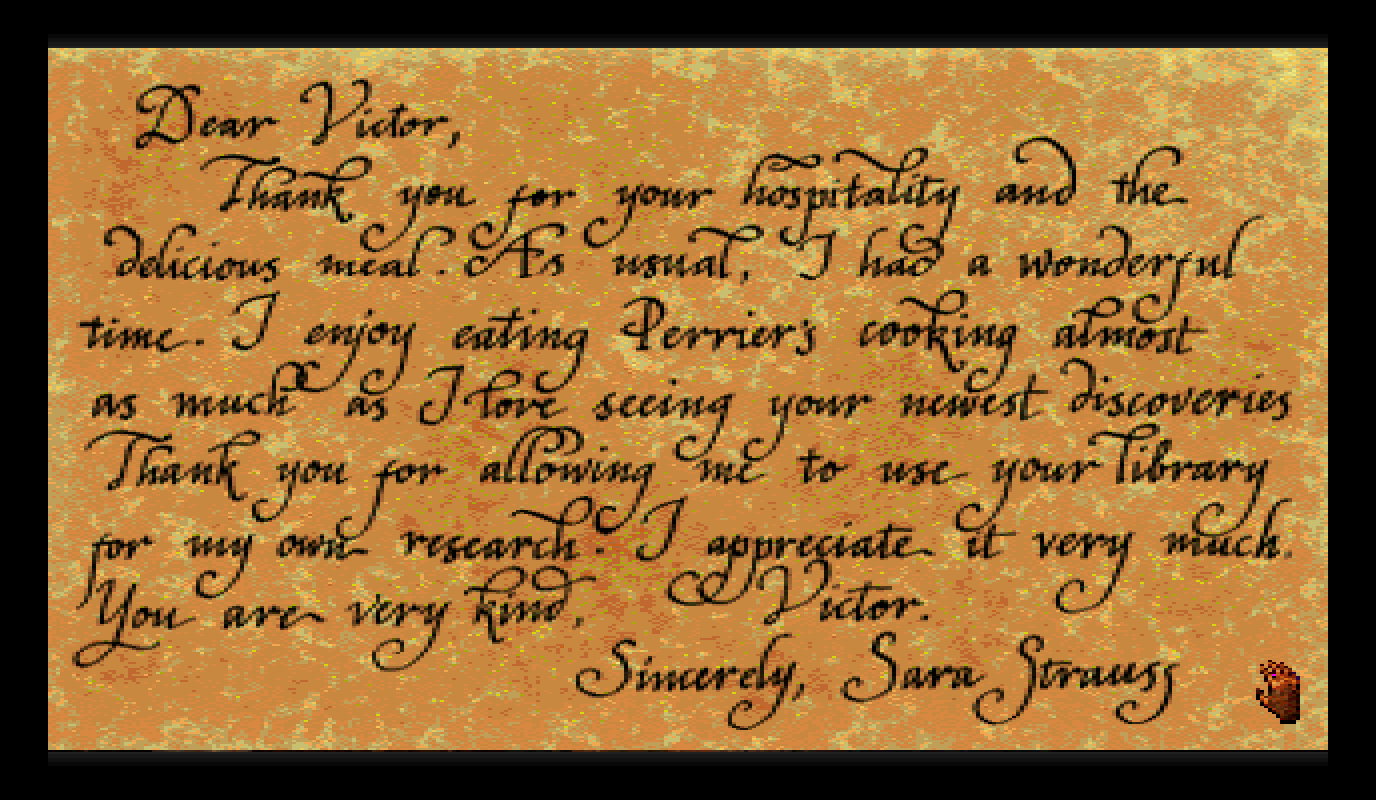 Dear Victor,
Thank you for your hospitality and the
delicious meal. As usual, I had a wonderful
time. I enjoy eating Perrier's cooking almost
as much as I love seeing your newest discoveries
Thank you for allowing me to use your library
for my own research. I appreciate it very much.
You are very kind, Victor.
Sincerely, Sara Strauss